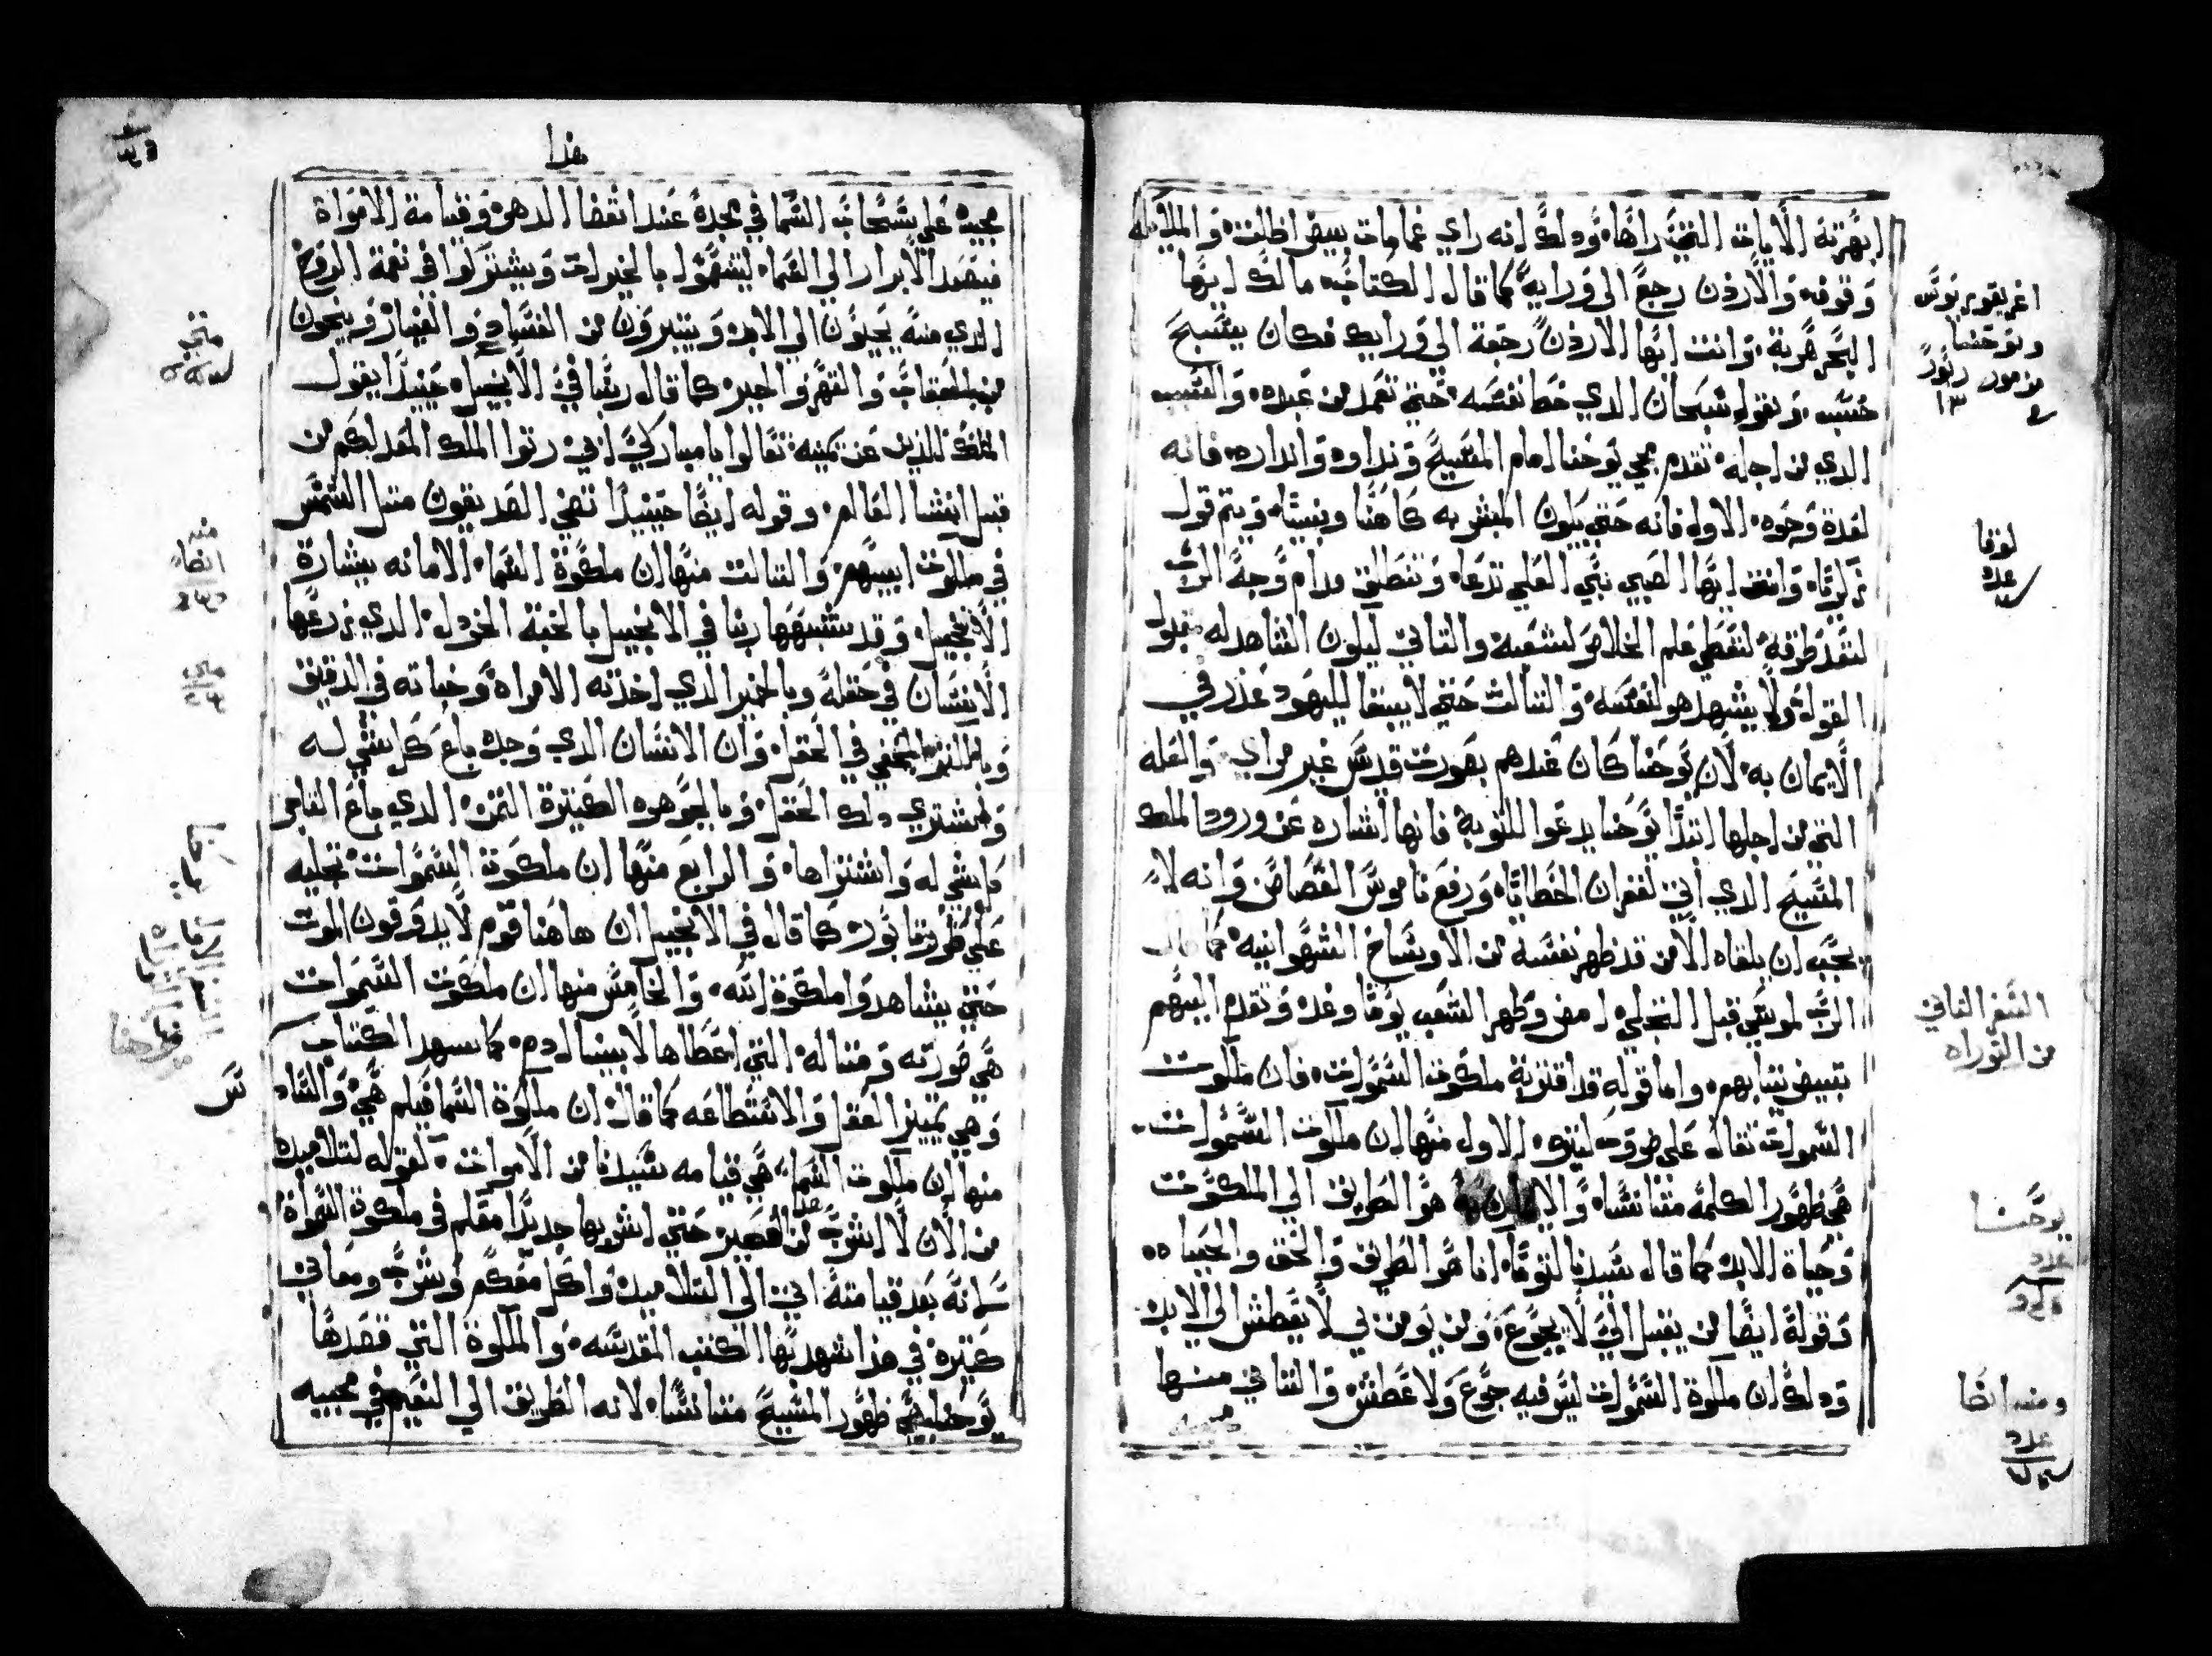 ابهرته الايات التي راها، ودلك انه راي غمامات بيض اظلت، والملايكه
وقوف، والاردن رجع الي ورايه كما قال الكتاب، مالك ايها
البحر هربة، وانت ايها الاردن رجعة الي ورايك فكان يسبح
ويقول سبحان الدي خطا نفسه حتي تعمد من عبده، والسبب
الدي من اجله تقدم مجي يوحنا امام المسيح ونداوه وانداره، فانه
لعدة وجوه، الاول فانه حتي يكون المبشر به كاهنا ونبيا، ويتم قول
زكريا، وانت ايها الصبي نبي العلي تدعا، وتنطلق قدام وجه الرب
لتعد طرقه، لتعطي علم الخلاص لشعبه والتاني ليكون الشاهد له مقبول
القول، ولا يشهد هو لنفسه، والتالت حتي لا يبقا لليهود عذر في
الايمان به، لان يوحنا كان عندهم بصورت قديس غير مراي، والعله
التي من اجلها ابتدا يوحنا يدعوا للتوبه فانها اشاره عن ورود الملك
المسيح الدي اتي لغفران الخطايا، ورفع ناموس القصاص وانه لا
يجب ان يلقاه الا من قد طهر نفسه من الاوساخ الشهوانيه، كما قال
الرب لموسي قبل التجلي امض وطهر الشعب يوما وغده وتقدم اليهم
تبييض تيابهم، واما قوله قد اقتربة ملكوت السموات، فان ملكوت
السموات تقال علي ضروب كتيره، الاول منها ان ملكوت السموات
هي ظهور الكلمه متانسا، والايمان به هو الطريق الي الملكوت
وحياة الابد، كما قال سيدنا لتوما، انا هو الطريق والحق والحياه
وقوله ايضا من يقبل الي لا يجوع، ومن يومن بي لا يعطش الي الابد
ودلك ان ملكوة السموات ليس فيه جوع ولا عطش والتاني منها
مجيه
اغريغوريوس
ويوحنا
مزمور
١٣
لوقا
عدد
السفر التاني
من التوراه
يوحنا
عدد
ومنه ايضا
عدد
هدا
مجيه علي سحاب السما في مجده عند انقضا الدهور وقيامة الامواة
فيصعد الابرار الي السما، ليتنعموا بالخيرات ويشتركوا في نعمة الروح
الدي منه يحيون الي الابد، ويتبررون من الفساد والفيار وينجون
من العقاب والقهر والجبر كما قال ربنا في الانجيل، حينيدا يقول
الملك للدين عن يمينه تعالوا يا مباركي ابي رتوا الملك المعد لكم من
قبل انشا العالم، وقوله ايضا حينيدا تضي الصديقون متل الشمس
في ملكوت ابيهم، والتالت منها ان ملكوة السما، الامانه ببشارة
الانجيل، وقد شبهها ربنا في الانجيل بالحبة الخردل، الدي زرعها
الانسان في حقله وبالخمير الدي اخدته الامراة وخباته في الدقيق
وبالكنز المخفي في الحقل، وان الانسان الدي وجده باع كل شي له
واشتري دلك الحقل، وبالجوهره الكتيرة التمن، الدي باع التاجر
كل شي له واشتراها، والرابع منها ان ملكوة السموات تجليه
علي طورتابور، كما قال في الانجيل ان هاهنا قوم لا يدوقون الموت
حتي يشاهدوا ملكوة الله، والخامس منها ان ملكوت السموات
هي صورته ومتاله، التي اعطاها لابينا ادم، كما يشهد الكتاب
وهي تمييز العقل والاستطاعه كما قال، ان ملكوة السما فيكم هي، والسادس
منها ان ملكوت السما، هي قيامه سيدنا من الاموات، لقوله لتلاميده
من الان لا اشرب من هدا العصير حتي اشربها جديدا معكم في ملكوة السمواة
لانه بعد قيامته اتي الي التلاميد، واكل معكم وشرب ومعاني
كتيرة في هدا شهد بها الكتب المقدسه، والملكوة التي قصدها
يوحنا هي ظهور المسيح متانسا، لانه الطريق الي النعيم في مجيه
متي
منه
ايضا
متي